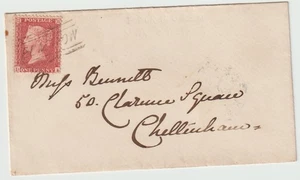 POSTAGE
ONE PENNY
Miss Bennett
50. Clarence Square
Cheltenham.